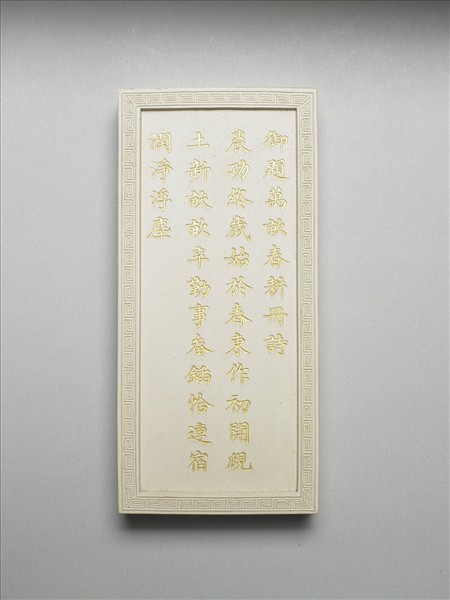 御題萬畝春耕冊詩
農功終歲始於春東作初開覛
土新畝畝辛勤事畚鍤恰遭宿
潤淨浮塵